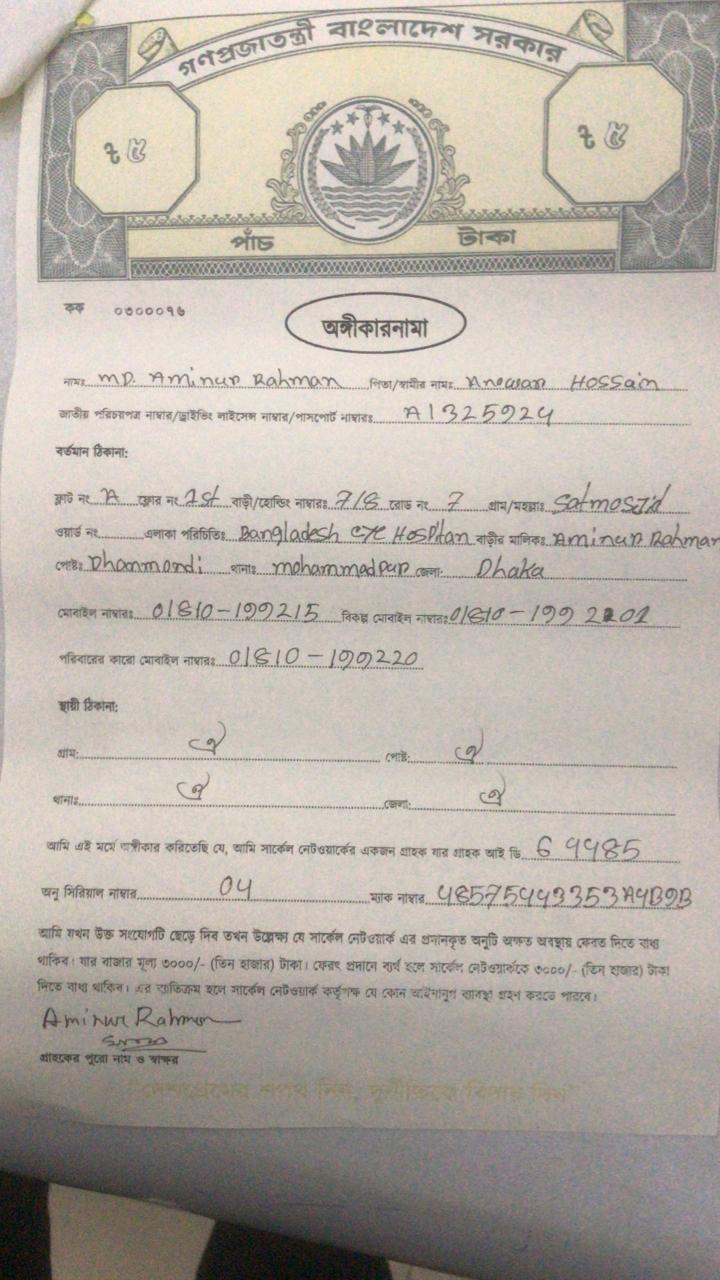 গণপ্রজাতন্ত্রী বাংলাদেশ সরকার
৳ ৫ ৳ ৫
পাঁচ টাকা
কক ০৩০০০৭৬
অঙ্গীকারনামা
নামঃ MD. Aminur Rahman পিতা/স্বামীর নামঃ Anowar Hossain
জাতীয় পরিচয়পত্র নাম্বার/ড্রাইভিং লাইসেন্স নাম্বার/পাসপোর্ট নাম্বারঃ A1325924
বর্তমান ঠিকানা:
ফ্লাট নং A ফ্লোর নং 1st বাড়ী/হোল্ডিং নাম্বারঃ 7/8 রোড নং 7 গ্রাম/মহল্লাঃ Satmosjid
ওয়ার্ড নং এলাকা পরিচিতিঃ Bangladesh eye Hospitan বাড়ীর মালিকঃ Aminur Rahman
পোষ্টঃ Dhanmondi থানাঃ mohammadpur জেলা: Dhaka
মোবাইল নাম্বারঃ 01810-199215 বিকল্প মোবাইল নাম্বারঃ 01810-199
পরিবারের কারো মোবাইল নাম্বারঃ 01810-199220
স্থায়ী ঠিকানা:
গ্রাম: ঐ পোষ্ট: ঐ
থানাঃ ঐ জেলা: ঐ
আমি এই মর্মে অঙ্গীকার করিতেছি যে, আমি সার্কেল নেটওয়ার্কের একজন গ্রাহক যার গ্রাহক আই ডি 69985
অনু সিরিয়াল নাম্বার 04 ম্যাক নাম্বার 48575449353A4B9B
আমি যখন উক্ত সংযোগটি ছেড়ে দিব তখন উল্লেক্ষ্য যে সার্কেল নেটওয়ার্ক এর প্রদানকৃত অনুটি অক্ষত অবস্থায় ফেরত দিতে বাধ্য
থাকিব। যার বাজার মূল্য ৩০০০/- (তিন হাজার) টাকা। ফেরৎ প্রদানে ব্যর্থ হলে সার্কেল নেটওয়ার্ককে ৩০০০/- (তিন হাজার) টাকা
দিতে বাধ্য থাকিব। এর ব্যতিক্রম হলে সার্কেল নেটওয়ার্ক কর্তৃপক্ষ যে কোন আইনানুগ ব্যাবস্থা গ্রহন করতে পারবে।
Aminur Rahman
গ্রাহকের পুরো নাম ও স্বাক্ষর
"দেশপ্রেমের শপথ নিন, দুর্নীতিকে বিদায় দিন"